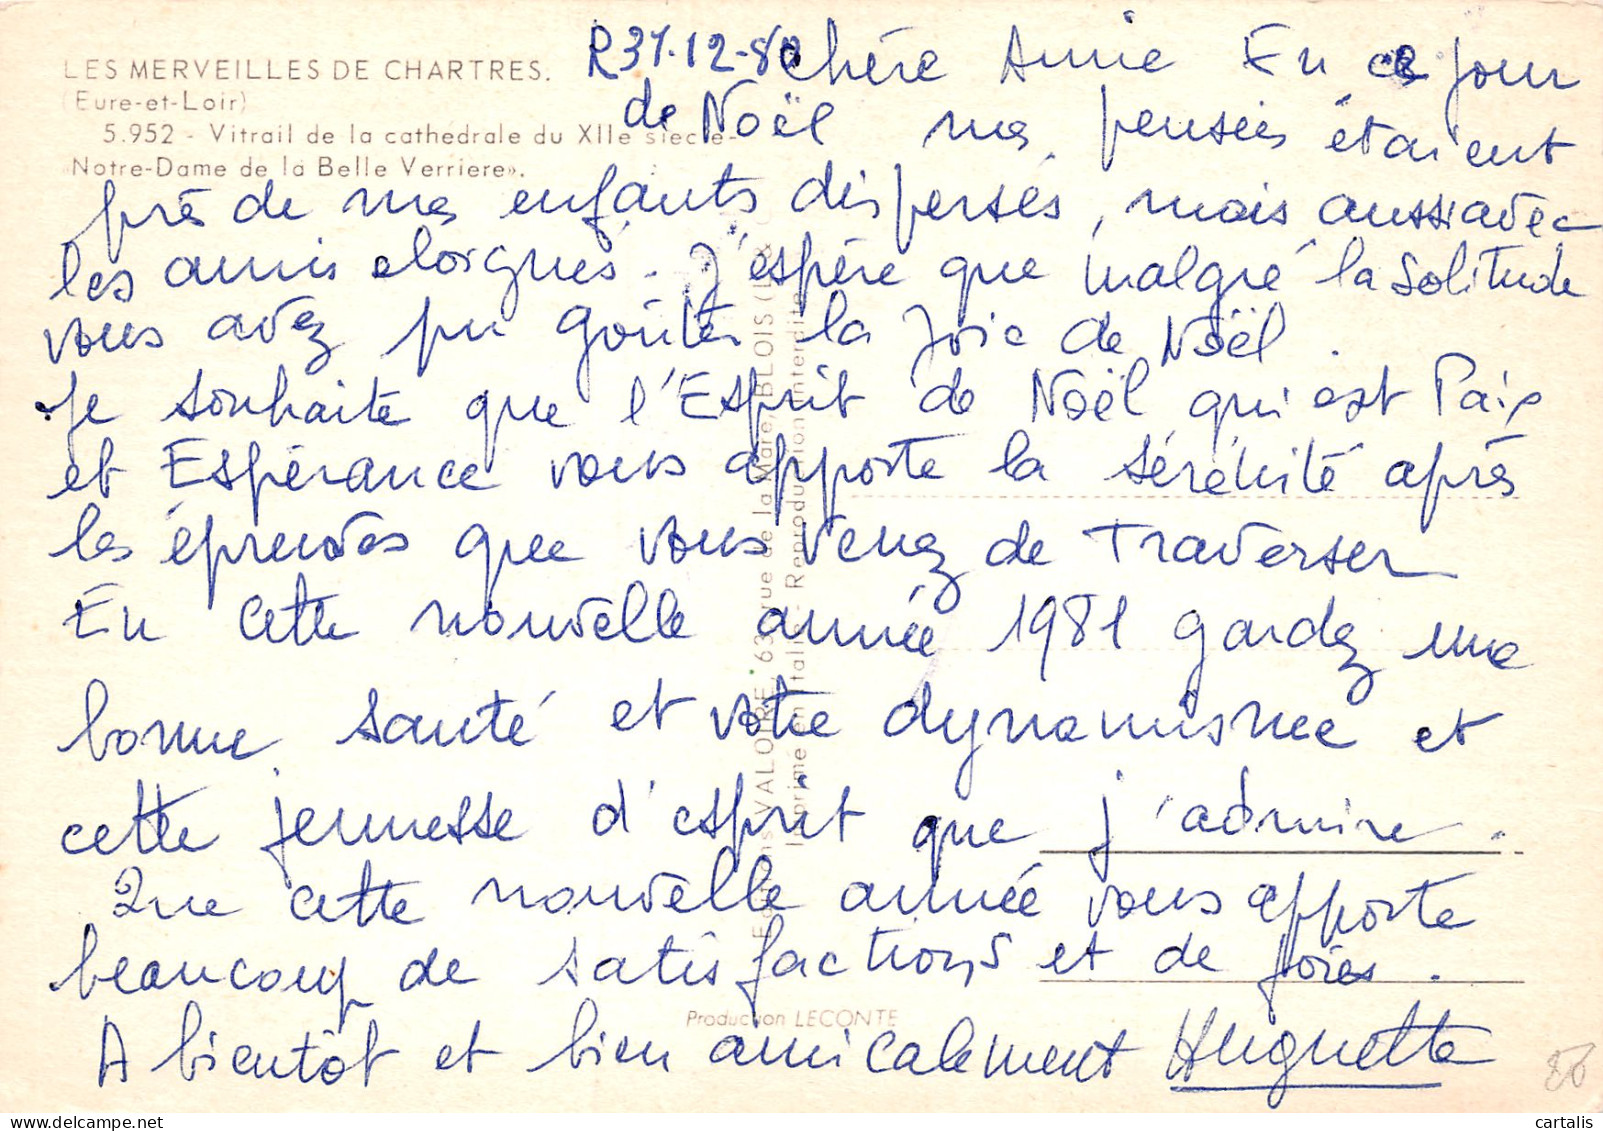 LES MERVEILLES DE CHARTRES.
(Eure-et-Loir)
5.952 - Vitrail de la cathédrale du XIIe siècle-
Notre-Dame de la Belle Verrière».
R 31-12-80
chère Annie En ce jour
de Noël mes pensées étaient
près de mes enfants dispersés, mais aussi avec
les amis éloignés. J'espère que malgré la solitude
vous avez pu goûter la Joie de Noël.
Je souhaite que l'Esprit de Noël qui est Paix
et Espérance vous apporte la sérénité après
les épreuves que vous venez de traverser
En cette nouvelle année 1981 gardez une
bonne santé et votre dynamisme et
cette jeunesse d'esprit que j'admire.
Que cette nouvelle année vous apporte
beaucoup de satisfactions et de joies.
A bientôt et bien amicalement Huguette
Editions VALOIRE 63, rue de la Mare BLOIS (L. & C.)
Imprimé en Italie - Reproduction interdite
Production LECONTE
cartalis